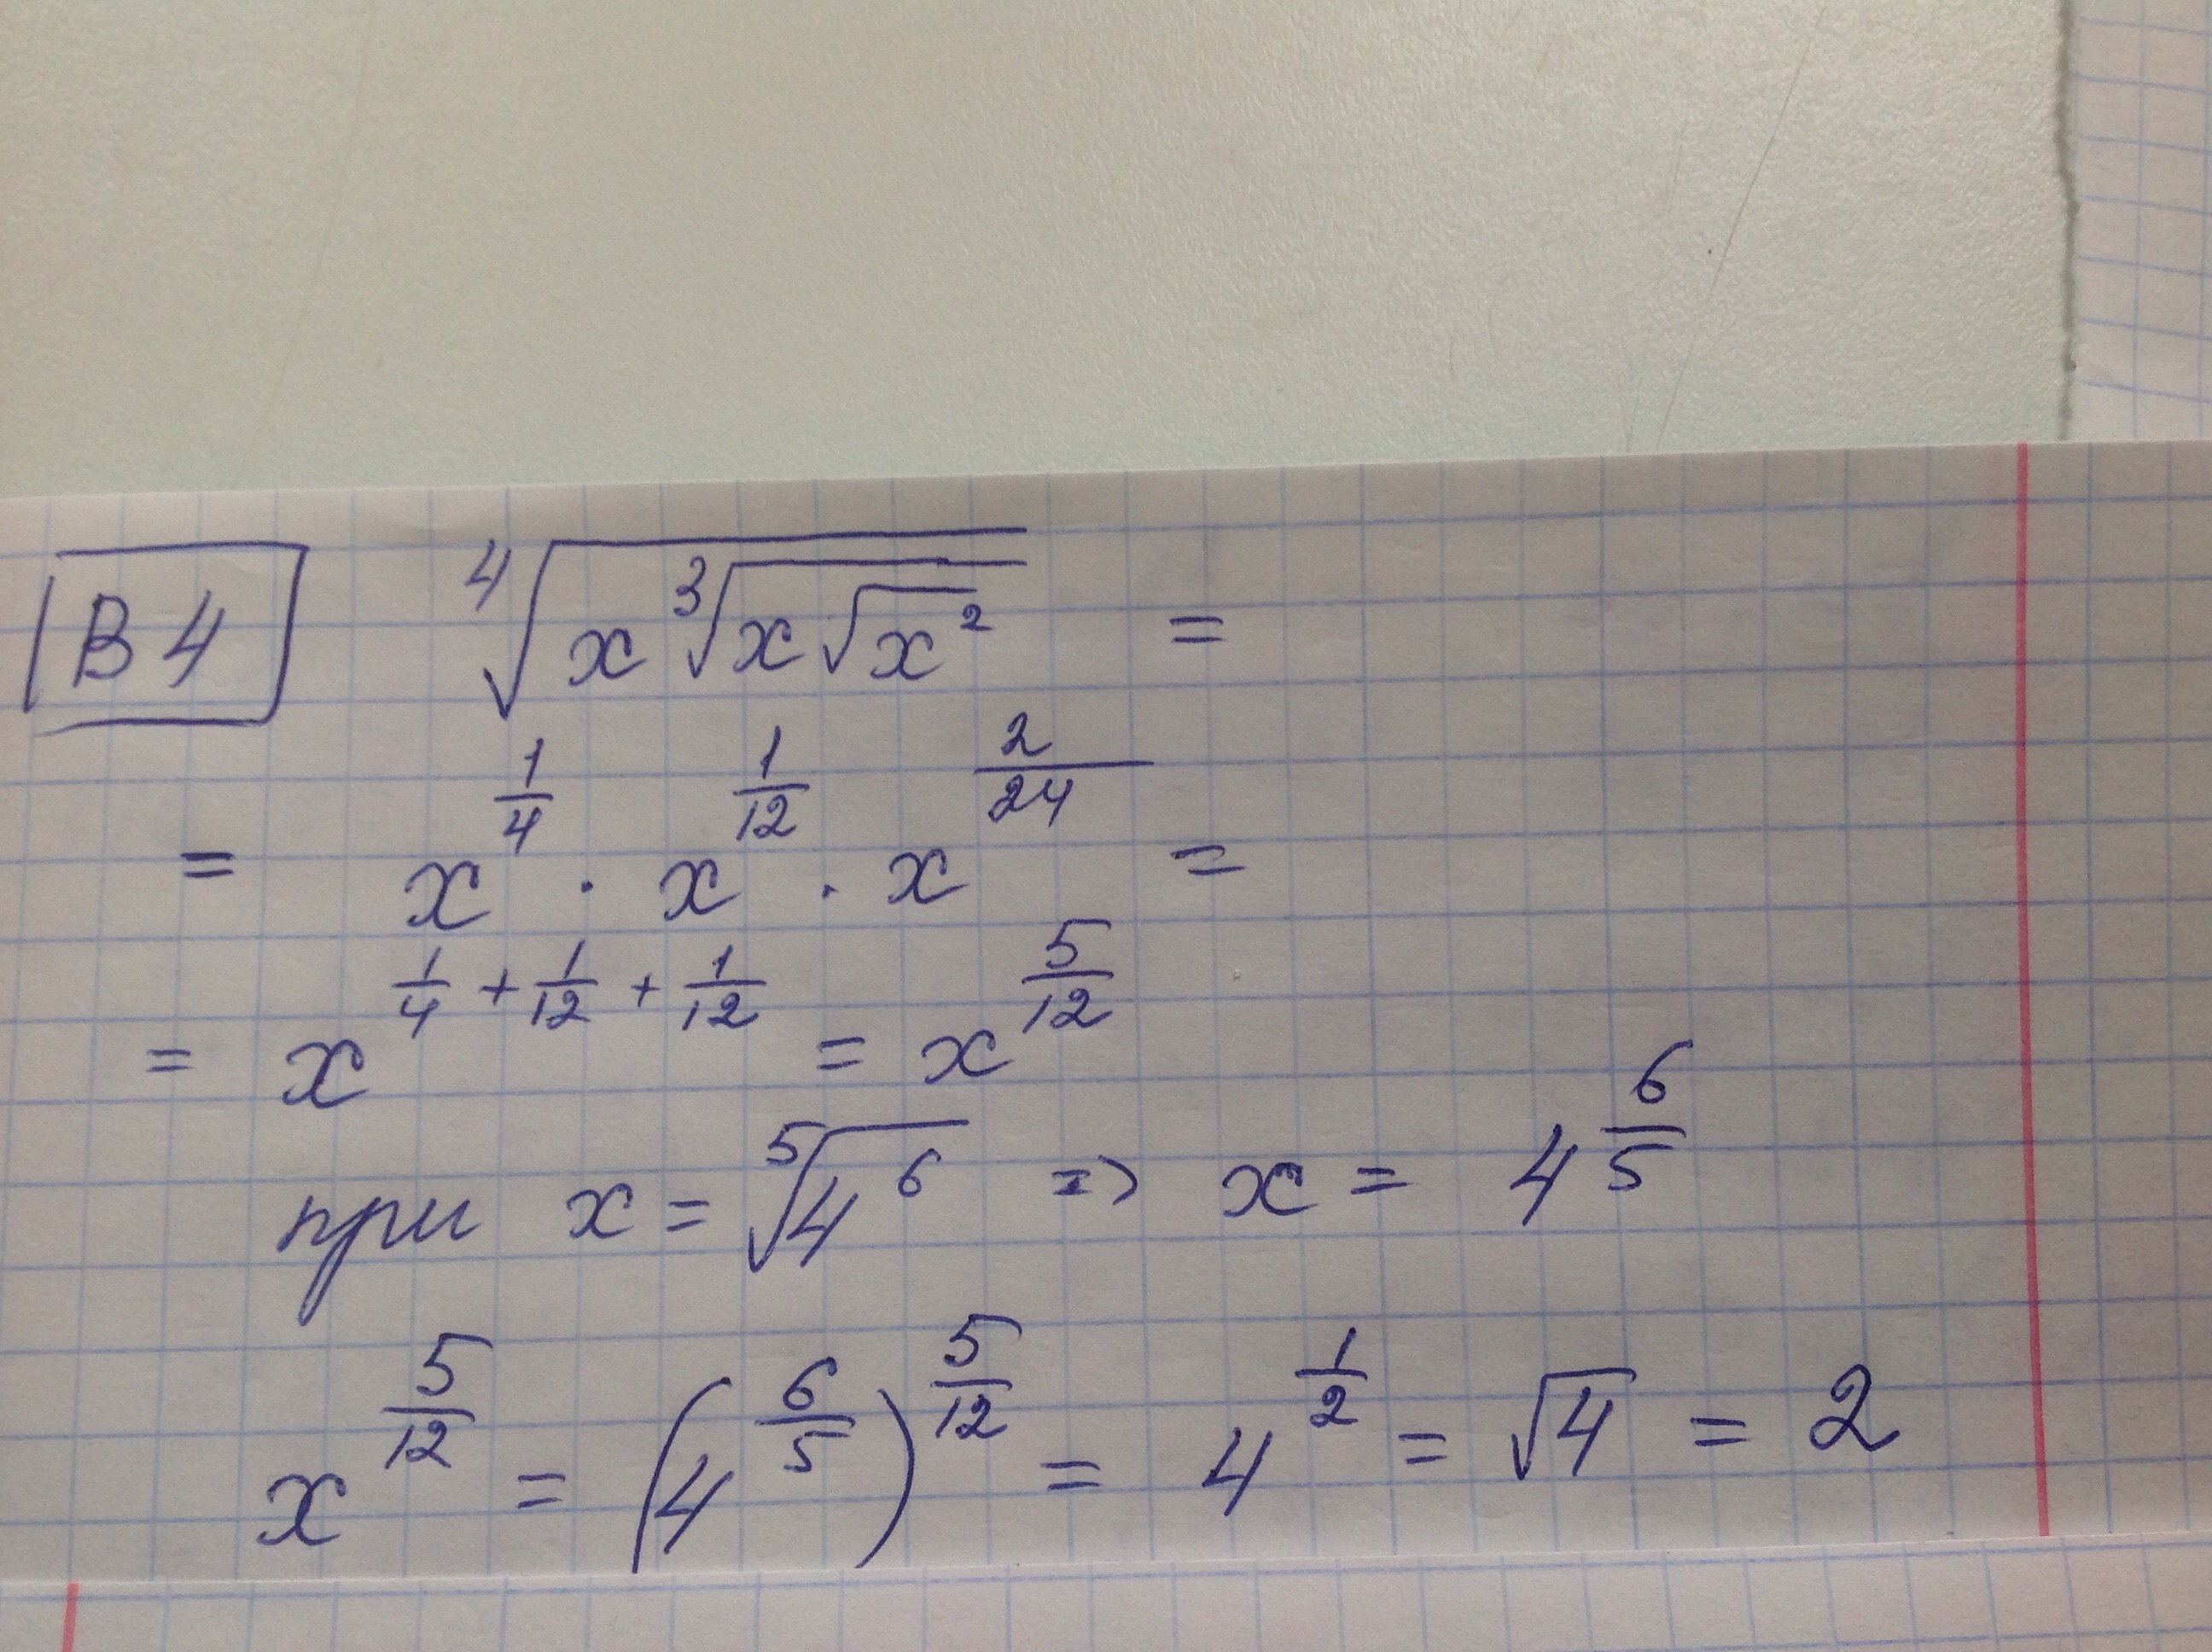 В 4 ⁴√(x ³√(x √x²)) =
= x^(1/4) · x^(1/12) · x^(2/24) =
= x^(1/4 + 1/12 + 1/12) = x^(5/12)
при x = ⁵√4⁶ => x = 4^(6/5)
x^(5/12) = (4^(6/5))^(5/12) = 4^(1/2) = √4 = 2